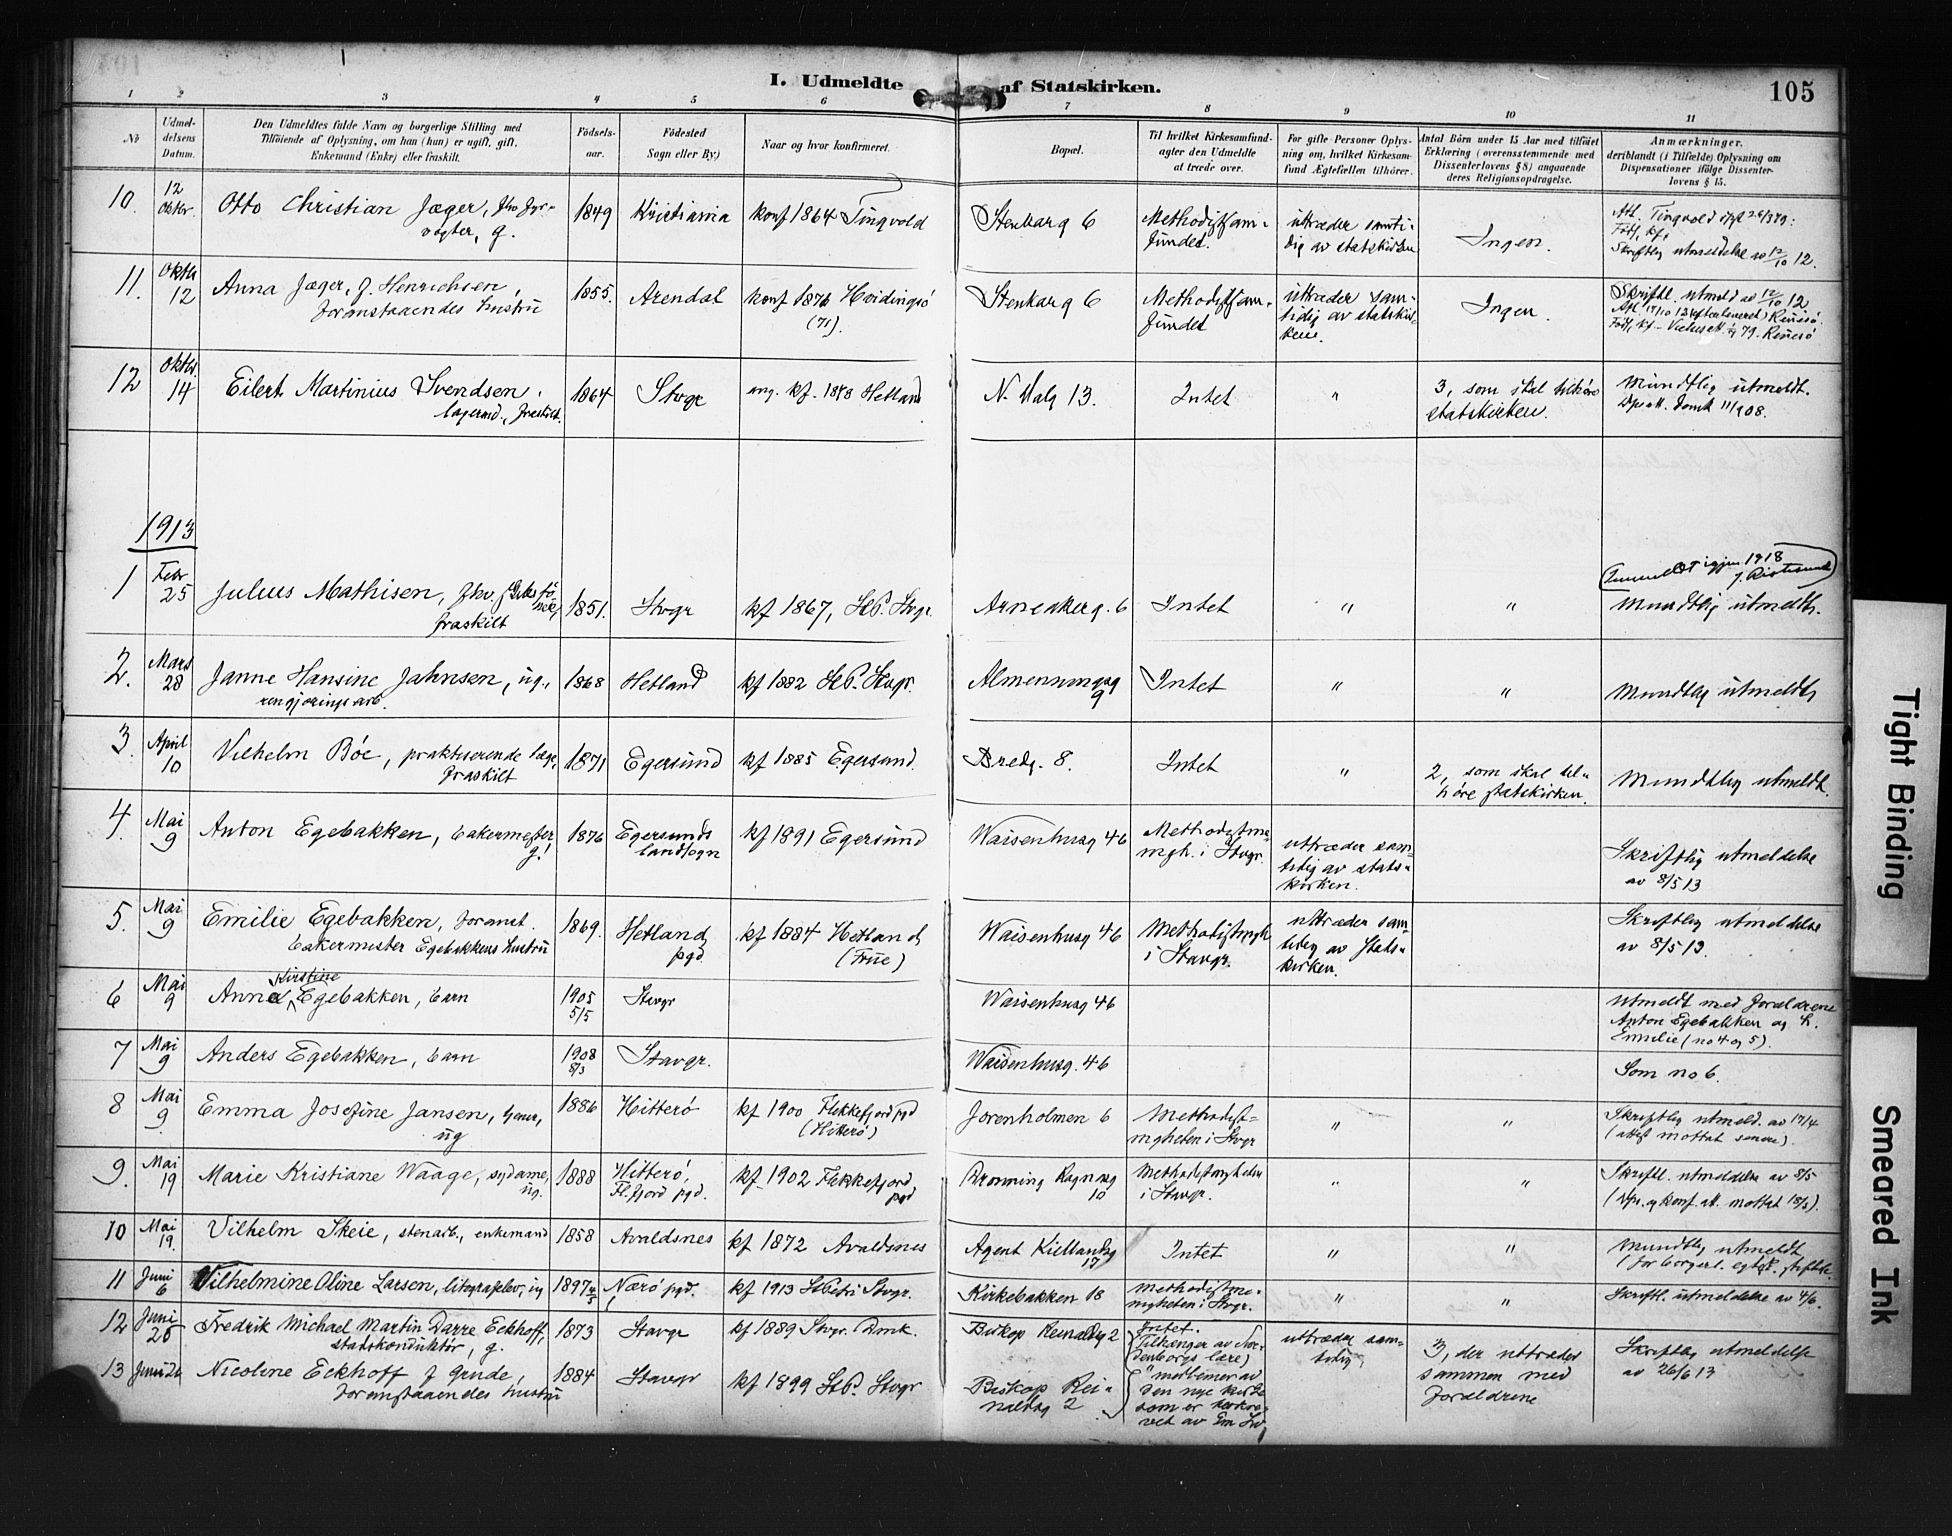 I. Udmeldte af Statskirken.
105
1 2 3 4 5 6 7 8 9 10 11
No
Udmeldelsens Datum.
Den Udmeldtes fulde Navn og borgerlige Stilling med
Tilföiende af Oplysning, om han (hun) er ugift, gift,
Enkemand (Enke) eller fraskilt.
Födselsaar.
Födested
Sogn eller By.)
Naar og hvor konfirmeret.
Bopæl.
Til hvilket Kirkesamfund
agter den Udmeldte
at træde over.
For gifte Personer Oplysning
om, hvilket Kirkesamfund
Ægtefællen tilhörer.
Antal Börn under 15 Aar med tilföiet
Erklæring (overensstemmende med
Dissenterlovens § 8) angaaende
deres Religionsopdragelse.
Anmærkninger.
deriblandt (i Tilfælde) Oplysning om
Dispensationer ifölge Dissenterlovens
§ 15.
10. 12 Oktbr. Otto Christian Jæger, fhv. fyrvogter, g. 1849 Kristiania konf 1864 Tingvold Stenkarg 6 Methodistsamfundet. uttræder samtidig av statskirken Ingen.
Skriftlig utmeldelse av 12/10 12.
11. Oktbr 12 Anna Jæger, f. Henrichsen, foranstaaendes hustru 1855. Arendal konf 1876 Hvidingsö (71). Stenkarg 6 Methodistsamfundet uttræder samtidig av statskirken. Ingen.
Skriftl. utmeld av 12/10 12
12 Oktbr. 14 Eilert Martinius Svendsen, lagermd., fraskilt. 1864 Stvgr ang. kf. 1878 Hetland N. Halg 13. Intet " 3, som skal tilhöre statskirken. Mundtlig utmeldt.
1913
1 Febr 25 Julius Mathisen, fhv. fraskilt 1851. Stvgr kf 1867, St.P. Stvgr. Arneakerg. 6 Intet " " Mundtlig utmeldt.
igjen 1918
2. Mars 28 Janne Hansine Jahnsen, ug., rengjöringsarb. 1868 Hetland kf 1882 St.P. Stvgr. Almenningsg 9 Intet " " Mundtlig utmeldt
3. April 10 Vilhelm Böe, praktiserende læge, fraskilt 1871 Egersund kf 1885 Egersund. Bredg. 8. Intet " 2, som skal tilhöre statskirken. Mundtlig utmeldt.
4. Mai 9 Anton Egebakken, bakermester, g. 1876 Egersunds landsogn kf 1891 Egersund Waisenhusg 46 Methodistmngh. i Stvgr. uttræder samtidig av statskirken. Skriftlig utmeldelse av 8/5 13
5. Mai 9 Emilie Egebakken, foranst. bakermester Egebakkens hustru 1869. Hetland pgd. kf 1884 Hetland (Frue) Waisenhusg 46 Methodistmngh i Stavgr. uttræder samtidig av statskirken. Skriftlig utmeldelse av 8/5 13.
6 Mai 9 Anna Kirstine Egebakken, barn 1905 5/5 Stavgr Waisenhusg 46 utmeldt med forældrene Anton Egebakken og h. Emilie (no 4 og 5).
7 Mai 9 Anders Egebakken, barn 1908 8/3 Stavgr. Waisenhusg. 46 Som no 6.
8 Mai 9 Emma Josefine Jansen, tjener, ug 1886 Hitterö kf 1900 Flekkefjord pgd (Hitterö) Jorenholmen 6 Methodistmgheten i Stvgr " " Skriftlig utmeld. av 17/4 (attest mottat senere).
9. Mai 19 Marie Kristiane Waage, sydame, ug. 1888 Hitterö, Fl.fjord pgd. kf. 1902 Flekkefjord pgd Dronning Ragnasg 10 Methodistmgheten i Stavgr. " " Skriftl. utmeldelse av 8/5
10 Mai 19. Vilhelm Skeie, stenarb., enkemand 1858 Avaldsnes kf 1872 Avaldsnes Agent Kiellandsg 17 Intet " " Mundtlig utmeldt
11 Juni 6 Vilhelmine Oline Larsen, litografelev, ug 1897 Nærö pgd. kf 1913 St Petri Stvgr. Kirkebakken 18 Methodistmenigheten i Stvgr. " " Skriftl. utmeldelse av 4/6.
12 Juni 26 Fredrik Michael Martin Darre Eckhoff, statskonduktör, g. 1873 Stavgr kf 1889 Stvgr. Dmk. Biskop Reinaldsg 2 Intet. (Tilhænger av Svedenborgs lære) uttræder samtidig 3, der uttræder sammen med forældrene Skriftlig utmeldelse av 26/6 13
13 Juni 26 Nicoline Eckhoff f Grude, foranstaaendes hustru 1884 Stavgr kf 1899 St.P. Stvgr Biskop Reinaldsg 2 medlemer av den nye kirke som er